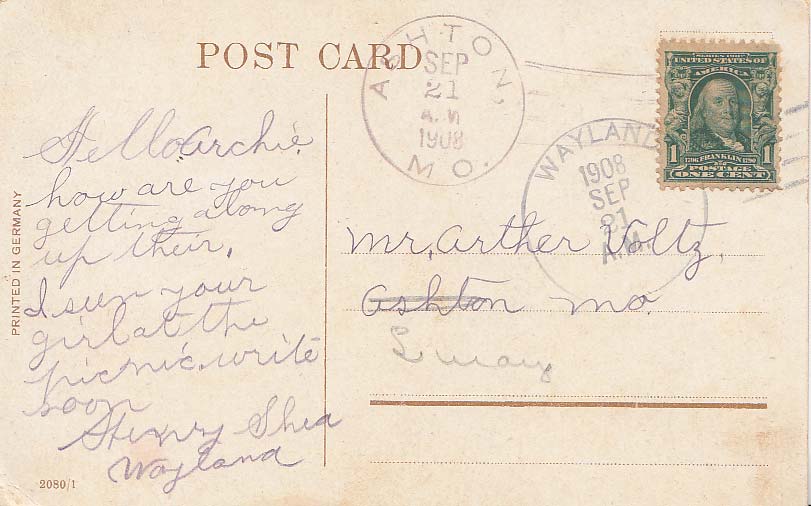 POST CARD
ASHTON,
SEP
21
A.M
1908
MO.
WAYLAND
1908
SEP
21
A.M.
SERIES 1902
UNITED STATES OF
AMERICA
1706 FRANKLIN 1790
1 1
POSTAGE
ONE CENT
Hello Archie
how are you
getting along
up their,
I seen your
girl at the
picnic. write
soon
Henry Shea
Wayland
Mr. Arther Voltz,
Ashton Mo.
PRINTED IN GERMANY
2080/1